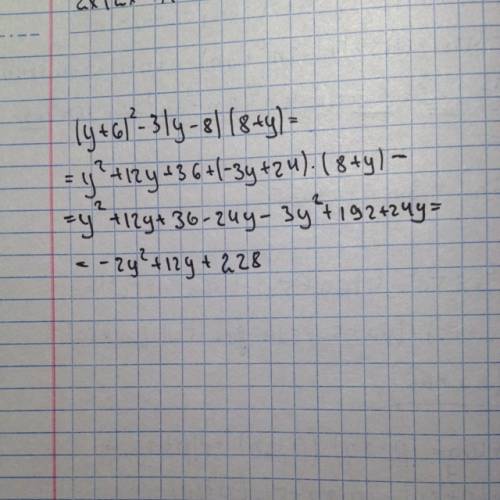 (y+6)²-3(y-8)(8+y)=
=y²+12y+36+(-3y+24)·(8+y)-
=y²+12y+36-24y-3y²+192+24y=
=-2y²+12y+228